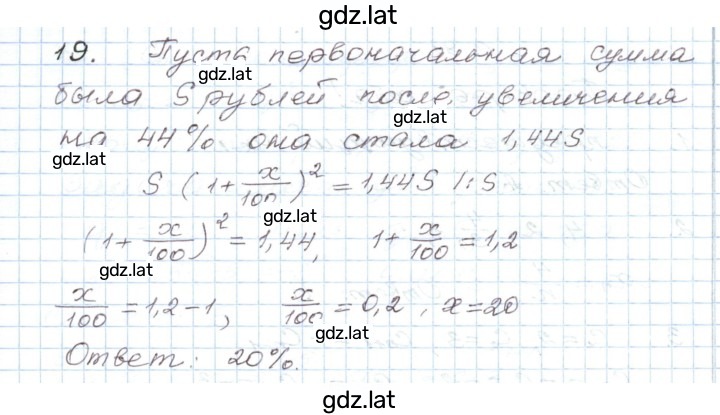 gdz.lat
19. Пуста первоначальная сумма
gdz.lat
была S рублей после увеличения
на 44% она стала 1,44S
gdz.lat
S (1+x/100)^2 = 1,44S /:S
gdz.lat
(1+x/100)^2 = 1,44, 1+x/100 = 1,2
gdz.lat
x/100 = 1,2-1, x/100 = 0,2, x=20
gdz.lat
Ответ: 20%.
gdz.lat
gdz.lat